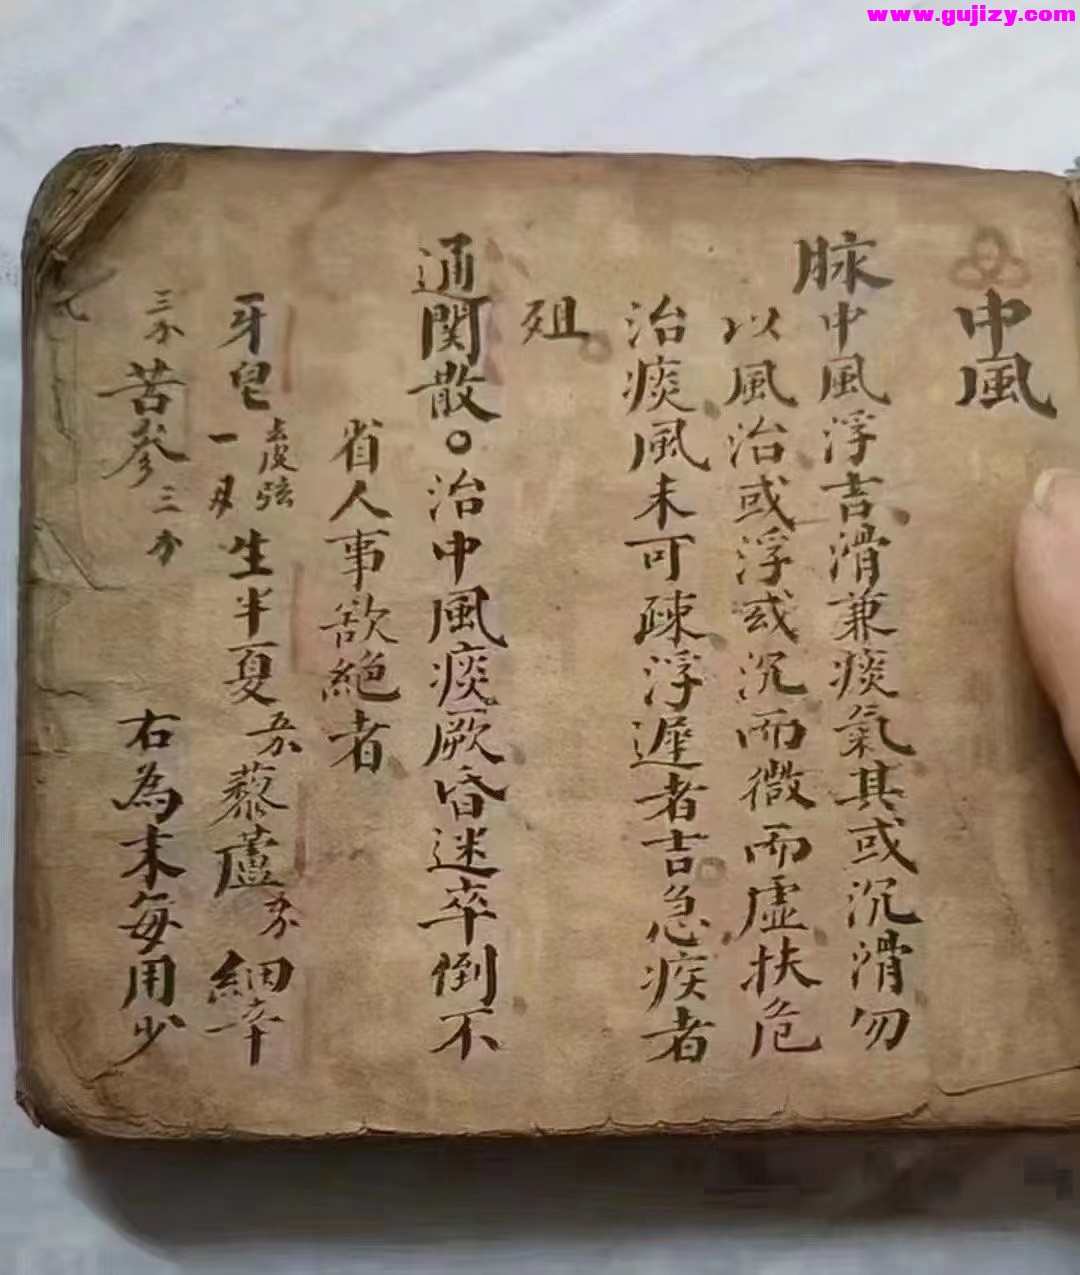 www.gujizy.com
中風
脉中風浮吉滑兼痰氣其或沉滑勿
以風治或浮或沉而微而虚扶危
治痰風未可疎浮遲者吉急疾者
殂
通関散。治中風痰厥昏迷卒倒不
省人事欲絶者
牙皂去皮弦一月生半夏五分藜蘆五分細辛
三分苦參三分 右為末每用少